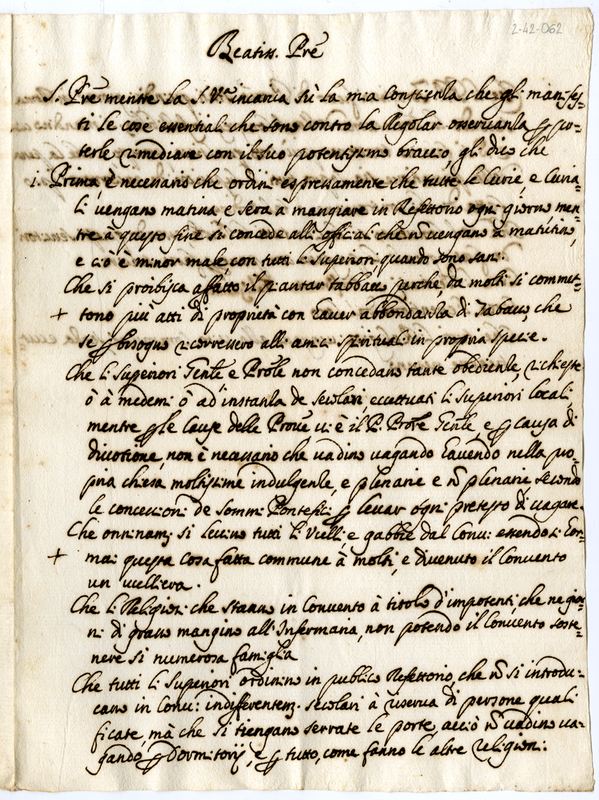 2-42-062
Beatiss. Prê
S. Prê mentre la S. V.ra incarica sù la mia conscienza che gli manifes-
ti le cose essentiali che sono contro la Regolar osservanza per po-
terle rimediare con il suo potentissimo braccio, gli dico che
1. Prima è necessario che ordini espressamente che tutte le Curie, e Curia-
li vengano matina e sera à mangiare in Refettorio ogni giorno, men-
tre à questo fine si concede alli officiali che nõ vengano à matutino,
e ciò è minor male con tutti li Superiori quando sono sani.
Che si proibisca affatto il piantar tabbaco perche da molti si commet-
+ tono più atti di proprietà con haver abbondanza di Tabaco che
se per bisogno ricorressero alli amici spirituali in propria specie.
Che li Superiori Gen̄le e Prov̄le non concedano tante obedienze, richieste
ò à medemi ò ad'instanza de secolari eccettuati li Superiori locali
mentre per le cause delle Prove vi è il P. Prov̄le Gen̄le e per causa di
divotione, non è necessario che vadino vagando havendo nella pro-
pria chiesa moltissime indulgenze, e plenarie e nõ plenarie secondo
le concessioni de sommi Pontefici per levar ogni pretesto di vagare.
Che onninam.te si levino tutti li Ucelli e gabbie dal Conv.o essendosi hor-
+ mai questa cosa fatta commune à molti, e divenuto il Convento
un ucelliera.
Che li Religiosi che stanno in Convento à titolo d'impotenti, che ne gior-
ni di grasso mangino all'Infermaria, non potendo il Convento soste-
nere si numerosa famiglia
Che tutti li Superiori ordinino in publico Refettorio, che nõ si introdu-
cano in Conv.o indifferentem.te secolari à riserva di persone quali-
ficate, mà che si tiengano serrate le porte, acciò nõ vadino va-
gando per Dormitorij, e per tutto, come fanno le altre religioni.